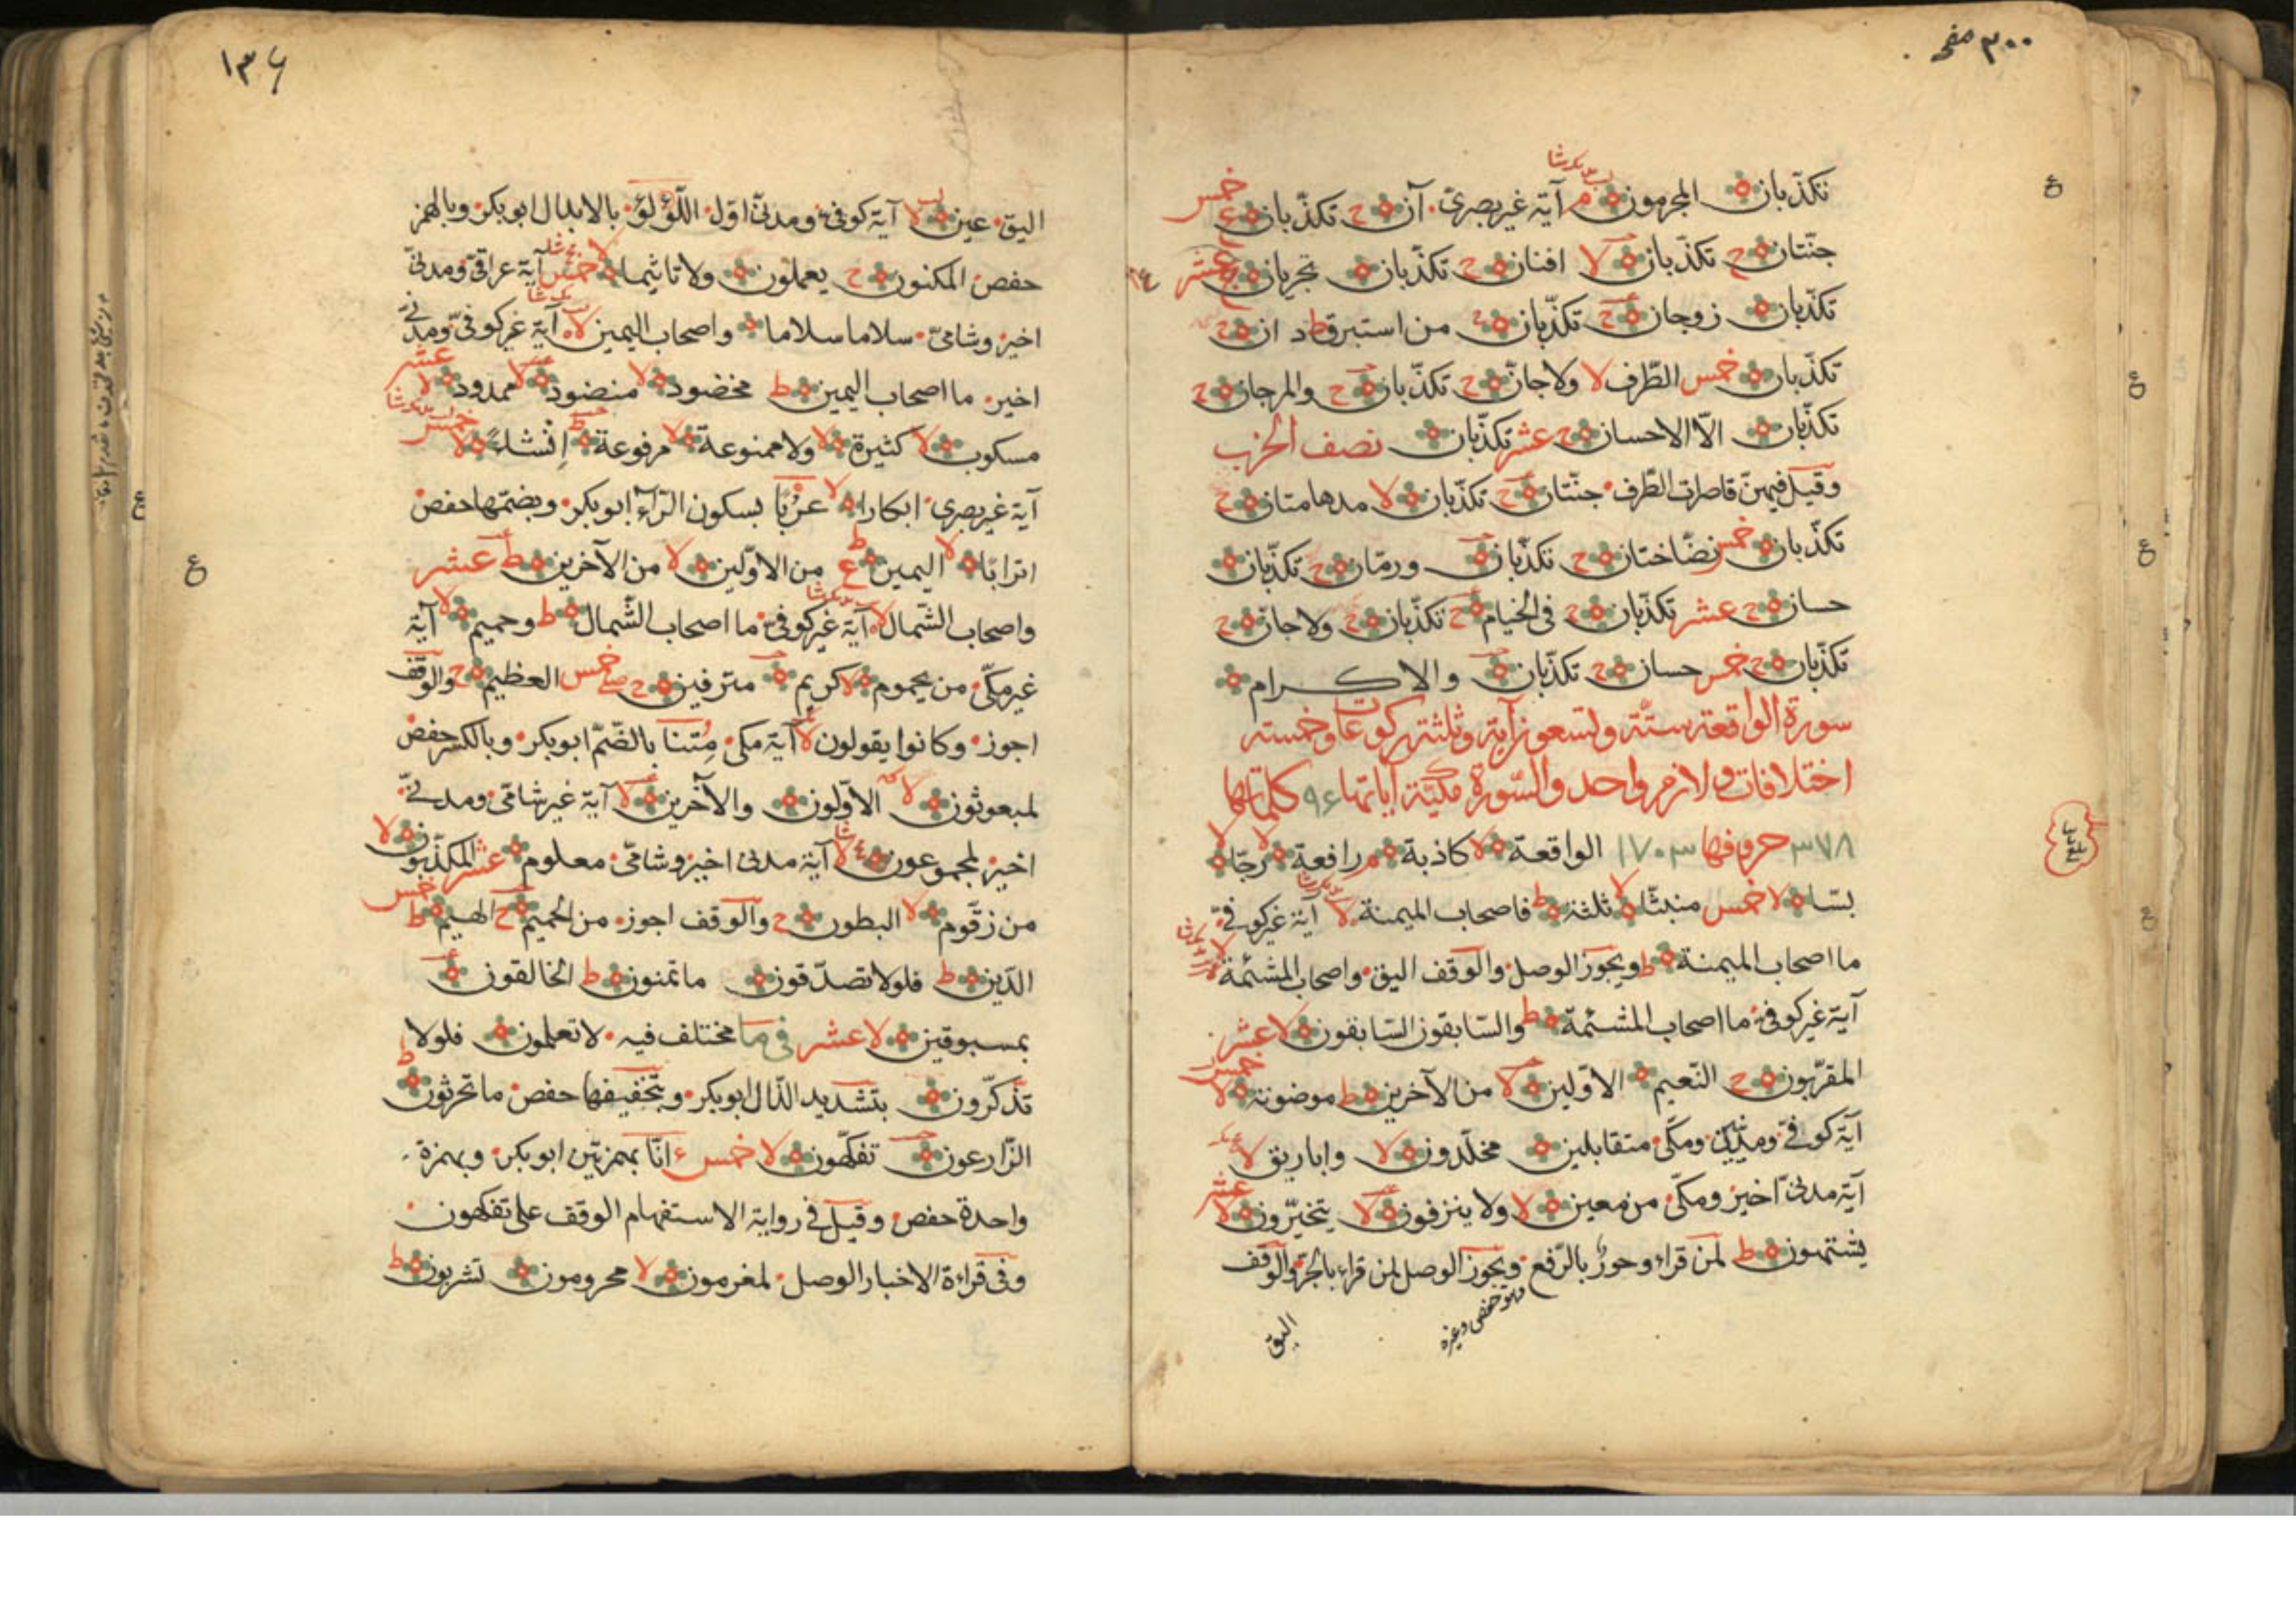 ٣٠٠ صفحہ
تكذّبان المجرمون م آية غير بصرىّ آن ح تكذّبان ع خمس
جنّتان ح تكذّبان لا افنان ح تكذّبان تجريان ح عشر
تكذّبان زوجان ح تكذّبان ع من استبرق ط دان ح
تكذّبان خمس الطّرف لا ولا جانّ ح تكذّبان ح والمرجان ح
تكذّبان الّا الاحسان ح عشر تكذّبان نصف الحزب
وقيل فيهنّ قاصرات الطّرف جنّتان ح تكذّبان لا مدهامتان ح
تكذّبان خمس نضّاختان ح تكذّبان ورمّان ح تكذّبان
حسان ح عشر تكذّبان ح فى الخيام ح تكذّبان ح ولا جانّ ح
تكذّبان ح خمس حسان ح تكذّبان والاكرام
سورة الواقعة ستّة وتسعون آية وثلثة ركوعات وخمسة
اختلافات ولازم واحد والسّورة مكيّة آياتها ٩٦ كلماتها
٣٧٨ حروفها ١٧٠٣ الواقعة لا كاذبة م رافعة لا رجّا لا
بسّا لا خمس منبثّا لا ثلثة ط فاصحاب الميمنة لا آية غير كوفىّ
ما اصحاب الميمنة ط ويجوز الوصل والوقف اليق واصحاب المشئمة
آية غير كوفىّ ما اصحاب المشئمة ط والسّابقون السّابقون لا عشر
المقرّبون ح النّعيم الاوّلين لا من الآخرين ط موضونة لا خمس
آية كوفىّ ومدنيّين ومكّى متقابلين مخلّدون لا واباريق لا
آية مدنىّ اخير ومكّى من معين لا ولا ينزفون لا يتخيّرون لا عشر
يشتهون ط لمن قراء وحورٌ بالرّفع ويجوز الوصل لمن قراء بالجرّ والوقف
وهو حفص وغيره
اليق
١٣٦
اليق عين لا آية كوفىّ ومدنىّ اوّل اللّؤلؤ بالابدال ابو بكر وبالهمز
حفص المكنون ح يعملون ولا تاثيما لا خمس آية عراقىّ ومدنىّ
اخير وشامىّ سلاما سلاما واصحاب اليمين لا آية غير كوفىّ ومدنىّ
اخير ما اصحاب اليمين ط مخضود لا منضود لا ممدود لا عشر
مسكوب لا كثيرة لا ولا ممنوعة لا مرفوعة ط انشاءً لا خمس
آية غير بصرى ابكارا لا عرْبًا بسكون الرّاء ابو بكر وبضمّها حفص
اترابًا لا اليمين ط ع من الاوّلين لا من الآخرين ط عشر
واصحاب الشّمال لا آية غير كوفىّ ما اصحاب الشّمال ط وحميم لا آية
غير مكّى من يحموم لا كريم مترفين ح خمس العظيم ح والوقف
اجوز وكانوا يقولون لا آية مكى مِتنا بالضّمّ ابو بكر وبالكسر حفص
لمبعوثون لا الاوّلون والآخرين لا آية غير شامىّ ومدنىّ
اخير لمجموعون لا آية مدنى اخير وشامىّ معلوم عشر المكذّبون لا
من زقّوم لا البطون ح والوقف اجوز من الحميم ح الهيم ط خمس
الدّين ط فلولا تصدّقون ما تمنون ط الخالقون
بمسبوقين لا عشر فى ما مختلف فيه لا تعلمون فلولا
تذّكّرون بتشديد الذّال ابو بكر وبتخفيفها حفص ما تحرثون ط
الزّارعون تفكّهون لا خمس ءانّا بهمزتين ابو بكر وبهمزة
واحدة حفص وقيل فى رواية الاستفهام الوقف على تفكهون
وفى قراءة الاخبار الوصل لمغرمون لا محرومون تشربون ط